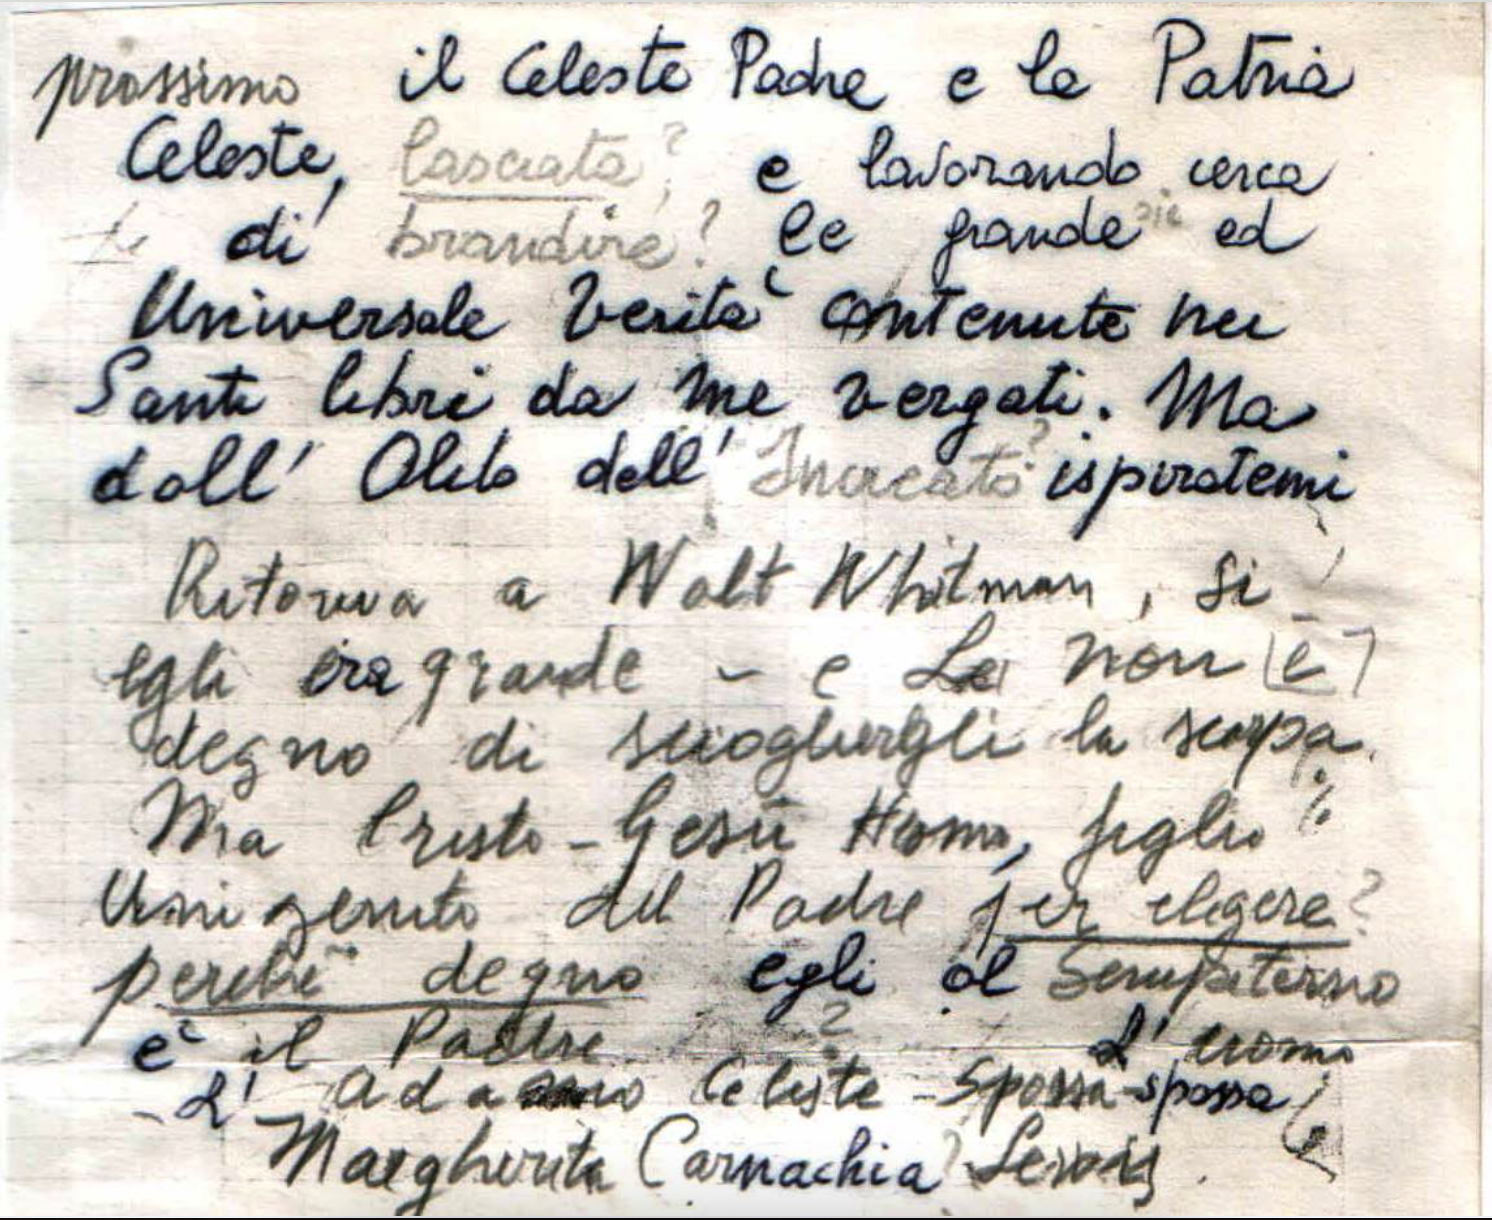 prossimo il Celeste Padre e la Patria
Celeste, lasciata? e lavorando cerca
di brandire? le grande ed
Universale Verità contenute nei
Santi libri da me vergati. Ma
dall' Alito dell' ispiratemi
Ritorna a Walt Whitman, si
egli era grande - e Lei non [è]
degno di sciogliergli la scarpa.
Ma Cristo - Gesù Homo, figlio
Unigenito del Padre per elegere?
perché degno egli al Sempiterno
è il Padre ? L'uomo
- L' Adamo Celeste - Spossa - spossa
Margherita Carnachia? Lewis.